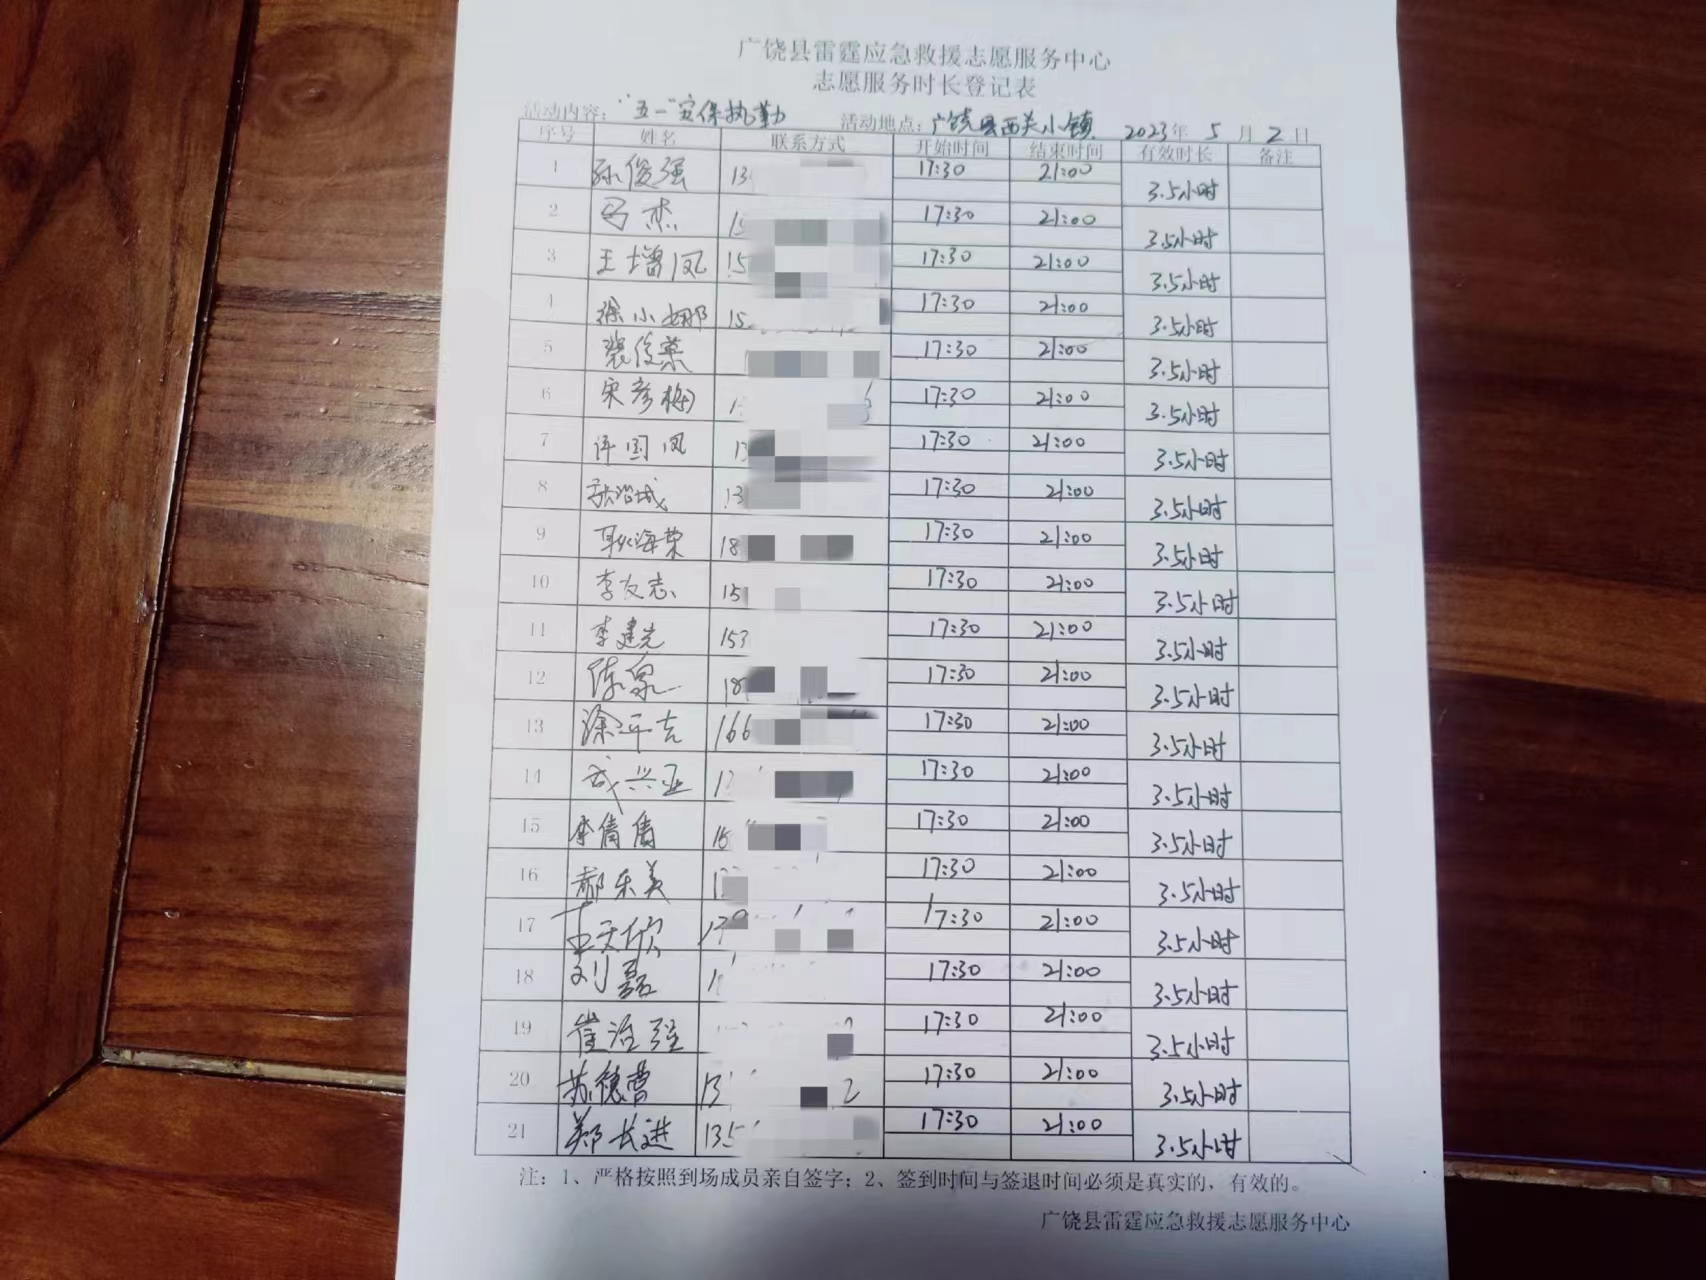 广饶县雷霆应急救援志愿服务中心
志愿服务时长登记表
活动内容：“五一”安保执勤 活动地点：广饶县西关小镇 2023年 5 月 2 日
序号 姓名 联系方式 开始时间 结束时间 有效时长 备注
1 孙俊强 13 17:30 21:00 3.5小时
2 马杰 15 17:30 21:00 3.5小时
3 王增凤 15 17:30 21:00 3.5小时
4 徐小娜 15 17:30 21:00 3.5小时
5 裴俊荣 17:30 21:00 3.5小时
6 宋彦梅 17:30 21:00 3.5小时
7 许国凤 13 17:30 21:00 3.5小时
8 13 17:30 21:00 3.5小时
9 耿海荣 18 17:30 21:00 3.5小时
10 李友志 15 17:30 21:00 3.5小时
11 李建光 153 17:30 21:00 3.5小时
12 陈泉 18 17:30 21:00 3.5小时
13 涂平吉 166 17:30 21:00 3.5小时
14 成兴亚 17:30 21:00 3.5小时
15 李倩倩 17:30 21:00 3.5小时
16 郝乐美 17:30 21:00 3.5小时
17 王天欣 17:30 21:00 3.5小时
18 刘磊 17:30 21:00 3.5小时
19 崔治强 17:30 21:00 3.5小时
20 苏德曹 13 2 17:30 21:00 3.5小时
21 郑长进 135 17:30 21:00 3.5小时
注：1、严格按照到场成员亲自签字；2、签到时间与签退时间必须是真实的，有效的。
广饶县雷霆应急救援志愿服务中心